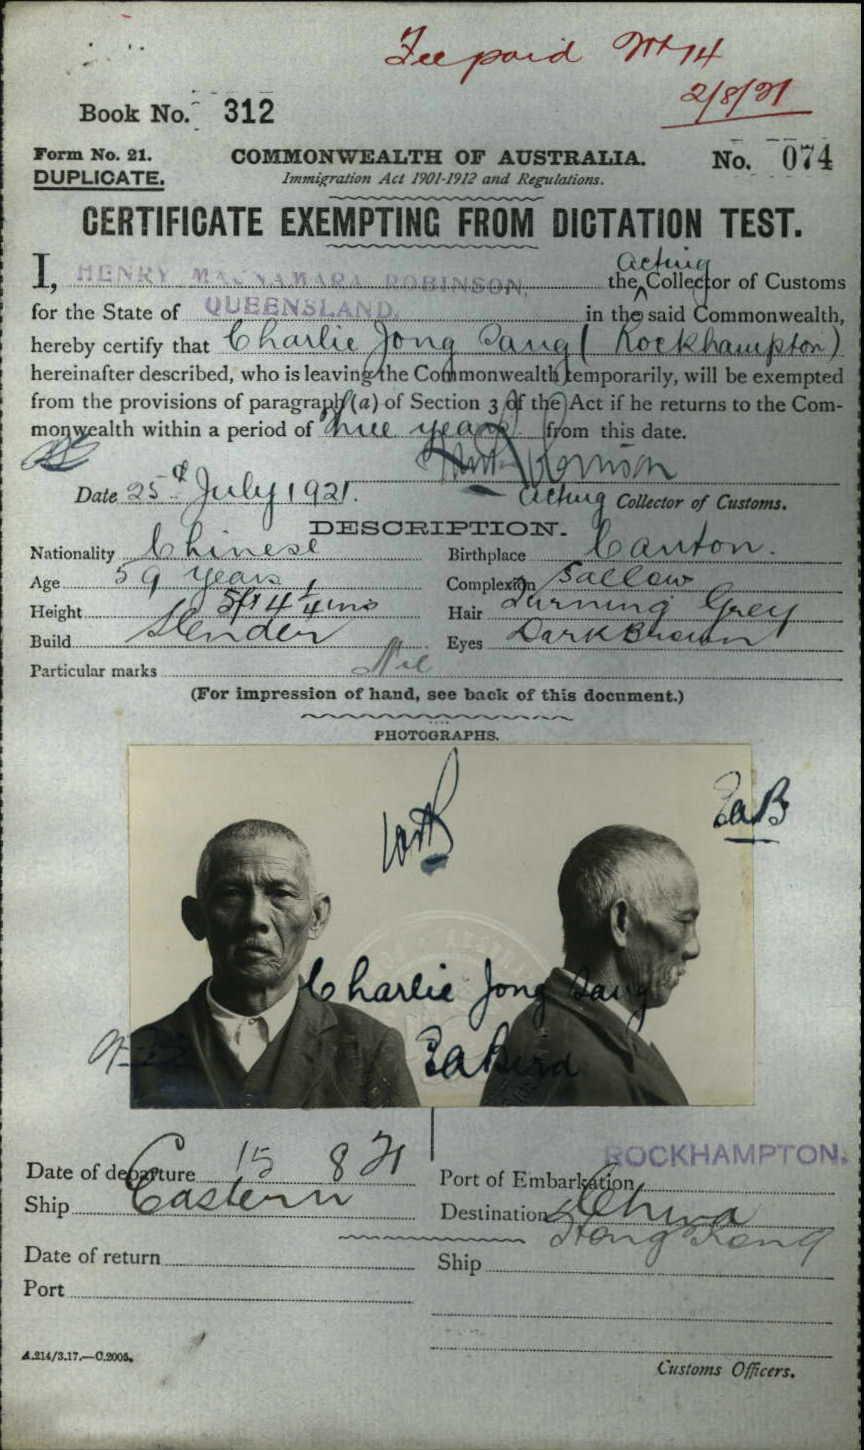 Fee paid
2/8/21
Book No. 312
Form No. 21.
COMMONWEALTH OF AUSTRALIA.
No. 074
DUPLICATE.
Immigration Act 1901-1912 and Regulations.
CERTIFICATE EXEMPTING FROM DICTATION TEST.
I, HENRY MACNAMARA ROBINSON, the Acting Collector of Customs
for the State of QUEENSLAND. in the said Commonwealth,
hereby certify that Charlie Jong Sang (Rockhampton)
hereinafter described, who is leaving the Commonwealth temporarily, will be exempted
from the provisions of paragraph (a) of Section 3 of the Act if he returns to the Com-
monwealth within a period of three years from this date.
Date 25th July 1921.
Acting Collector of Customs.
DESCRIPTION.
Nationality Chinese Birthplace Canton.
Age 59 years Complexion Sallow
Height 5ft 4 1/4 ins Hair Turning Grey
Build Slender Eyes Dark Brown
Particular marks Nil
(For impression of hand, see back of this document.)
PHOTOGRAPHS.
EaB
Charlie Jong Sang
Ea Bird
ROCKHAMPTON.
Date of departure 15 8 21 Port of Embarkation
Ship Eastern Destination China
Hong Kong
Date of return Ship
Port
A.214/3.17.—C.2005.
Customs Officers.